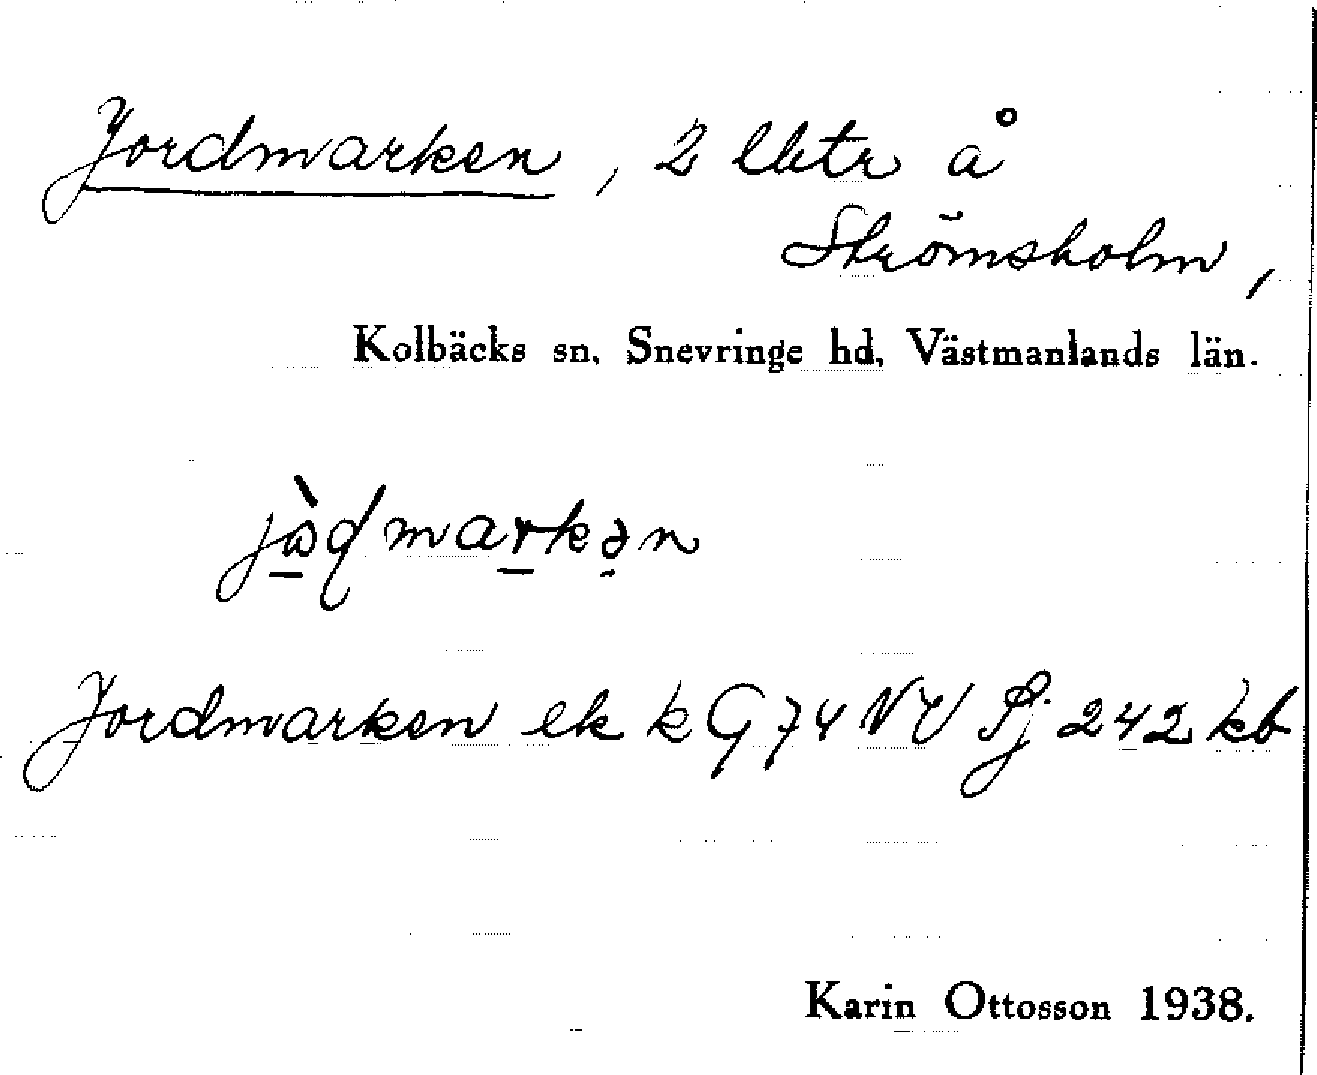 Jordmarken, 2 lhtr å
Strömsholm,
Kolbäcks sn, Snevringe hd, Västmanlands län.
Jordmarken ek k G 74 NV Sj 242 kb
Karin Ottosson 1938.